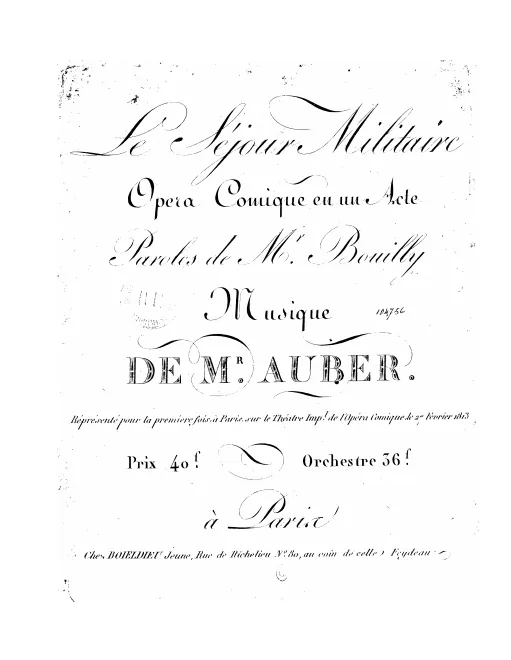 Le Séjour Militaire
Opera Comique en un Acte
Paroles de Mr. Bouilly
Musique
104756
DE MR. AUBER.
Réprésenté pour la premiere fois à Paris sur le Théâtre Impl. de l'Opéra Comique le 27 Février 1813
Prix 40f
Orchestre 36f
à Paris
Chez BOIELDIEU Jeune, Rue de Richelieu No. 80, au coin de celle Feydeau